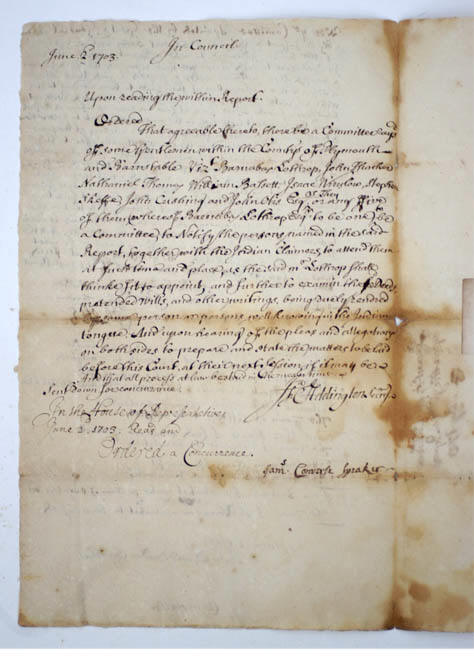 June 2d 1703. In Council
Upon reading the within Report.
Ordered
That agreeable thereto, there be a Committee
of some Gentlemen within the Countys of Plymouth
and Barnstable Vizt Barnabay Lothrop, John Thacher
Nathaniel Thomas William Bassett, Isaac Winslow, Stephen
Skeffe John Cushing and John Otis Esqrs or any five
of them whereof Barnabay Lothrop Esqr to be one, be
a Committee, to Notify the persons named in the said
Report, together with the Indian Claimers, to attend them
at such time and place, as the said mr Lothrop shall
thinke fit to appoint, and further to examin the
pretended Wills, and other writings, being duely
some person or persons well knowing in the Indian
tongue. And upon hearing of the pleas and allegations
on both sides to prepare and state the matter to be laid
before this Court at their next Session, if it may be
And that all process at law be staid in the mean time
Sent Down for concurrance. Addington Secry
In the House of Representatives
June 2. 1703. Read and
Ordered a Concurrence.
Jams Converse Speaker